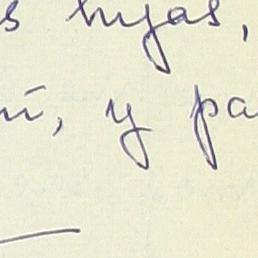 s hijas,
mí, y pa